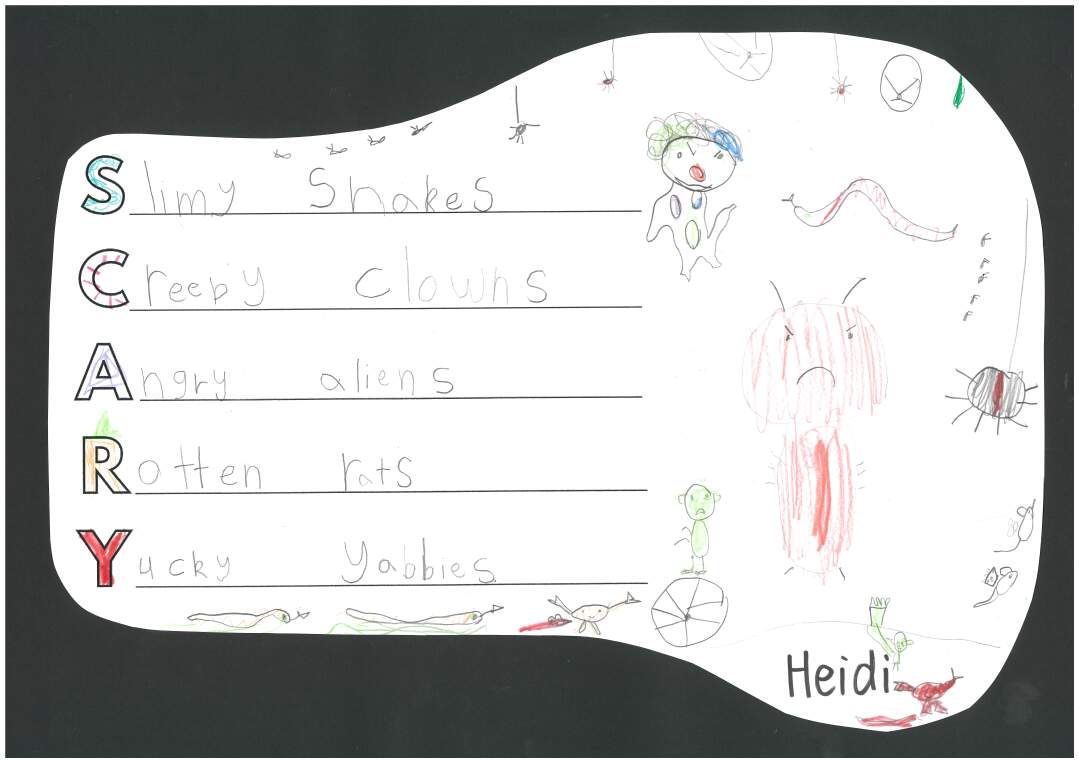 Slimy Snakes
Creepy clowns
Angry aliens
Rotten rats
Yucky yabbies
Heidi